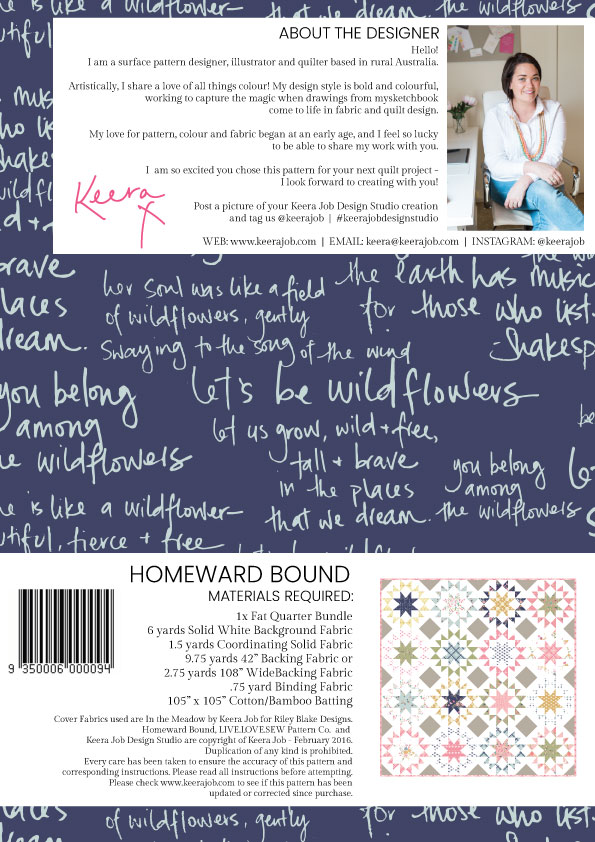 that we dream. the wildflowers
ABOUT THE DESIGNER
Hello!
I am a surface pattern designer, illustrator and quilter based in rural Australia.
Artistically, I share a love of all things colour! My design style is bold and colourful,
working to capture the magic when drawings from mysketchbook
come to life in fabric and quilt design.
My love for pattern, colour and fabric began at an early age, and I feel so lucky
to be able to share my work with you.
I am so excited you chose this pattern for your next quilt project -
I look forward to creating with you!
Keera
Post a picture of your Keera Job Design Studio creation
and tag us @keerajob | #keerajobdesignstudio
WEB: www.keerajob.com | EMAIL: keera@keerajob.com | INSTAGRAM: @keerajob
brave
her soul was like a field
the earth has music
laces
of wildflowers, gently
for those who list
ream.
swaying to the song of the wind
-Shakesp
you belong
let's be wildflowers
among
let us grow, wild + free,
be
e wildflowers
tall + brave
you belong
le
in the places
among
e is like a wildflower-
that we dream. the wildflowers
utiful, fierce + free
HOMEWARD BOUND
MATERIALS REQUIRED:
1x Fat Quarter Bundle
6 yards Solid White Background Fabric
1.5 yards Coordinating Solid Fabric
9.75 yards 42” Backing Fabric or
2.75 yards 108” WideBacking Fabric
.75 yard Binding Fabric
105” x 105” Cotton/Bamboo Batting
9 350006 000094
Cover Fabrics used are In the Meadow by Keera Job for Riley Blake Designs.
Homeward Bound, LIVE.LOVE.SEW Pattern Co. and
Keera Job Design Studio are copyright of Keera Job - February 2016.
Duplication of any kind is prohibited.
Every care has been taken to ensure the accuracy of this pattern and
corresponding instructions. Please read all instructions before attempting.
Please check www.keerajob.com to see if this pattern has been
updated or corrected since purchase.
laces
of wildflowers, gently
for those who list
ream.
swaying to the song of the wind